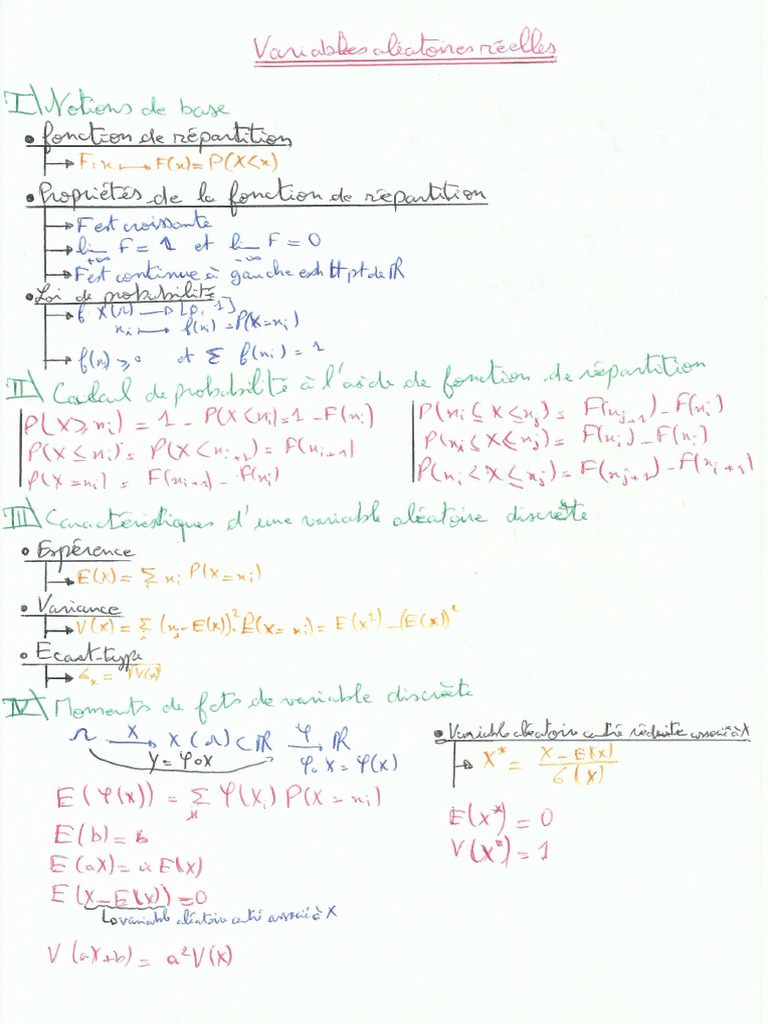 Variables aléatoires réelles
I\ Notions de base
• fonction de répartition
→ F: x ⟼ F(x) = P(X<x)
• Propriétés de la fonction de répartition
→ F est croissante
→ lim F = 1 et lim F = 0
+∞ -∞
→ F est continue à gauche en tt pt de ℝ
• Loi de probabilité
→ f: X(Ω) → [0, 1]
xᵢ ⟼ f(xᵢ) = P(X=xᵢ)
→ f(x) ≥ 0 et Σ f(xᵢ) = 1
II\ Calcul de probabilité à l'aide de fonction de répartition
P(X ≥ xᵢ) = 1 - P(X < xᵢ) = 1 - F(xᵢ)
P(X ≤ xᵢ) = P(X < xᵢ₊₁) = F(xᵢ₊₁)
P(X = xᵢ) = F(xᵢ₊₁) - F(xᵢ)
P(xᵢ ≤ X ≤ xⱼ) = F(xⱼ₊₁) - F(xᵢ)
P(xᵢ ≤ X < xⱼ) = F(xⱼ) - F(xᵢ)
P(xᵢ < X ≤ xⱼ) = F(xⱼ₊₁) - F(xᵢ₊₁)
III\ Caractéristiques d'une variable aléatoire discrète
• Espérence
→ E(X) = Σ xᵢ P(X=xᵢ)
• Variance
→ V(X) = Σ (xᵢ - E(X))² . P(X = xᵢ) = E(X²) - (E(X))²
• Ecart-type
→ σₓ = √V(X)
IV\ Moments de fcts de variable discrète
Ω —X→ X(Ω) ⊂ ℝ —φ→ ℝ
Y = φoX
φoX = φ(X)
E(φ(X)) = Σ φ(Xᵢ) P(X = xᵢ)
E(b) = b
E(aX) = a E(X)
E(X - E(X)) = 0
↳ variable aléatoire centré associé à X
V(aX+b) = a² V(X)
• Variable aléatoire centré réduite associé à X
→ X* = X - E(X) / σ(X)
E(X*) = 0
V(X*) = 1